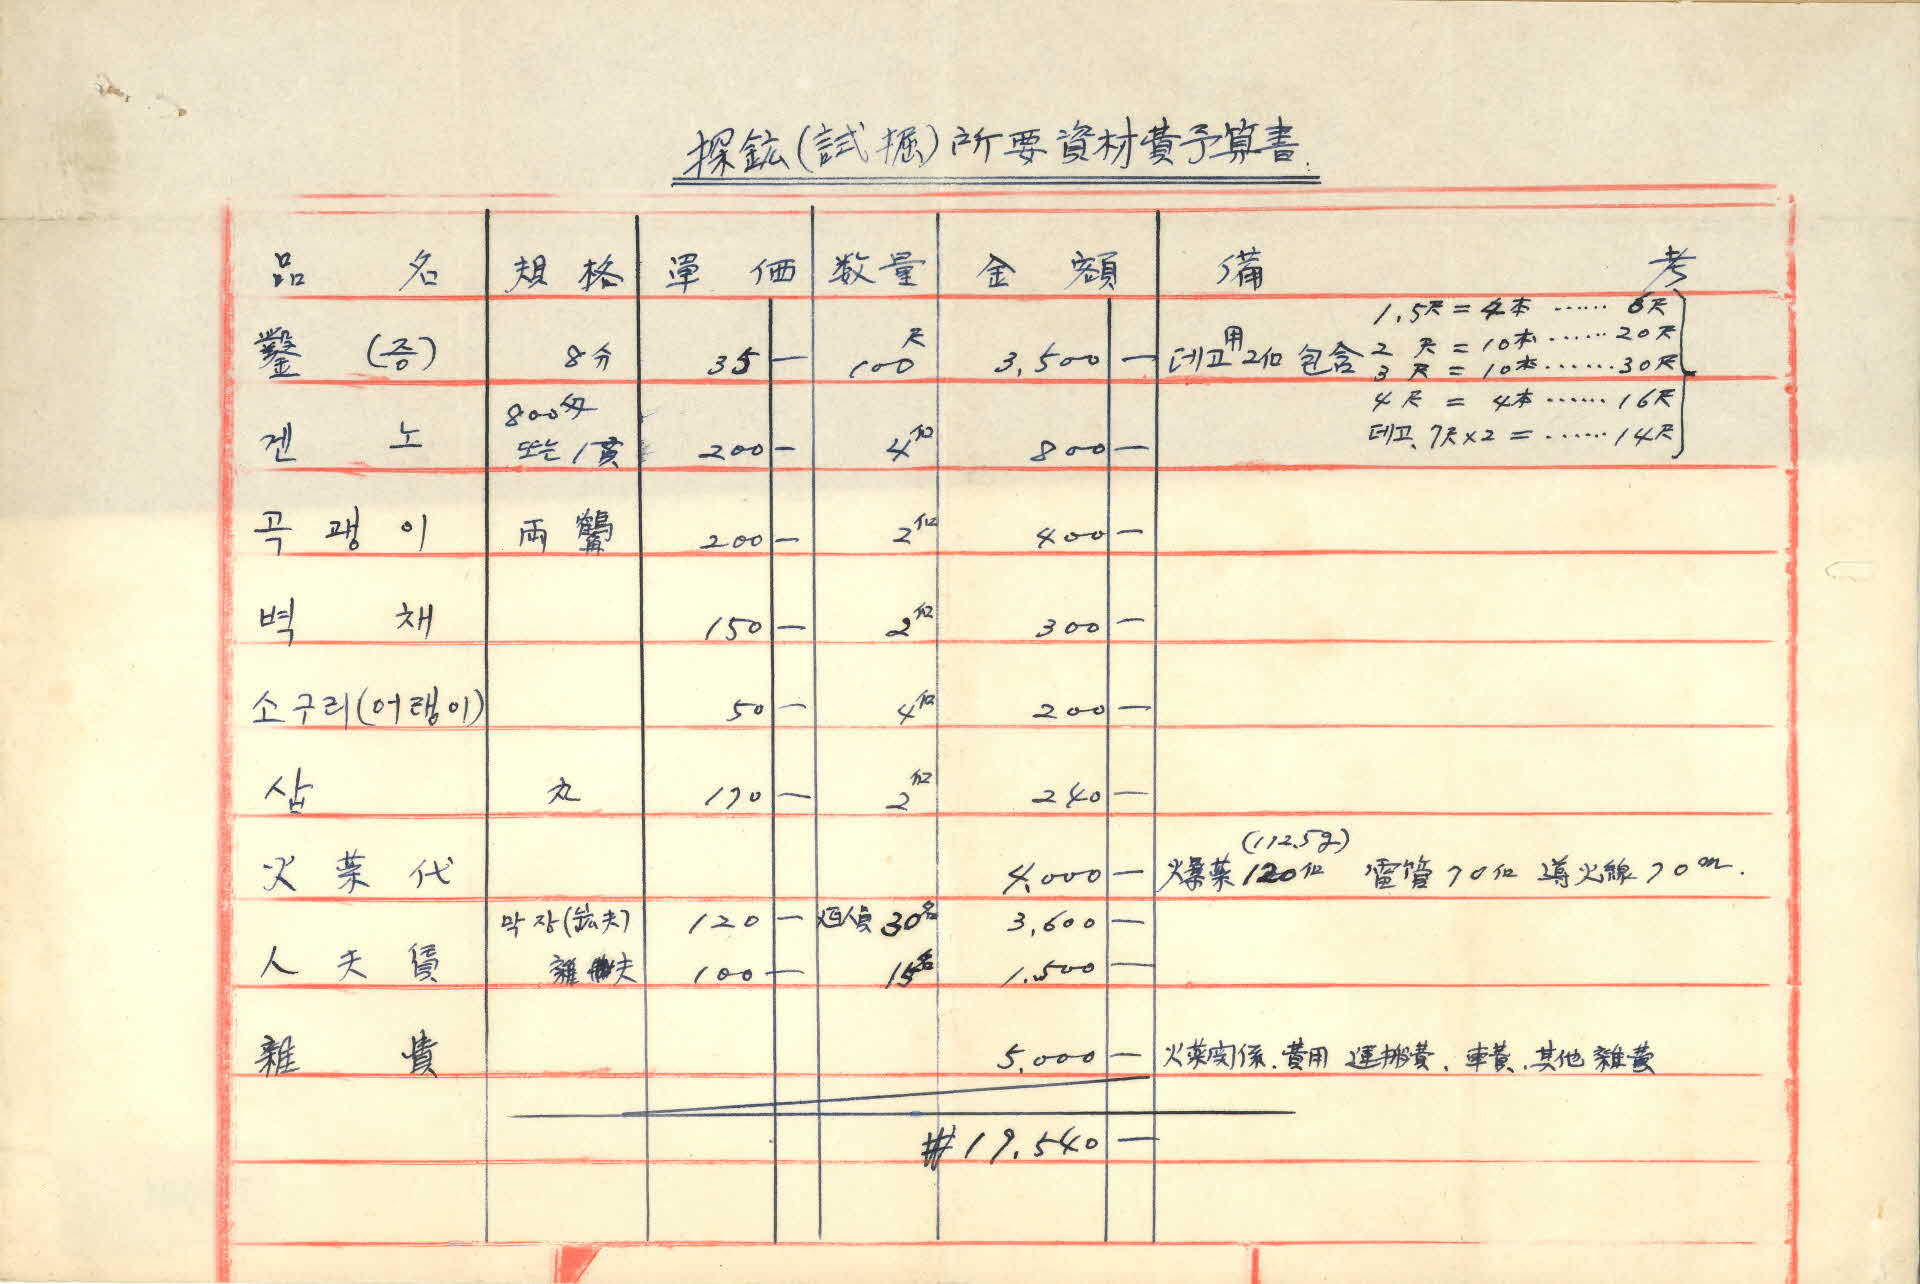 探鉱(試掘)所要資材費予算書.
品名 規格 單価 数量 金額 備考
鑿 (증) 8分 35— 100尺 3,500— 데고用2個 包含
1.5尺 = 4本 …… 6尺
2尺 = 10本 …… 20尺
3尺 = 10本 …… 30尺
4尺 = 4本 …… 16尺
데고. 7尺×2 = …… 14尺
겐노 800匁 또는 1貫 200— 4個 800—
곡괭이 両鶴 200— 2個 400—
벽채 150— 2個 300—
소구리(어랭이) 50— 4個 200—
삽 丸 170— 2個 240—
火薬代 4,000— 爆薬(112.5g) 120個 雷管 70個 導火線 70m.
人夫賃 막장(鉱夫) 120— 延人員 30名 3,600—
雜夫 100— 15名 1,500—
雜費 5,000— 火薬関係. 費用 運搬費. 車費. 其他 雜費
#19,540—